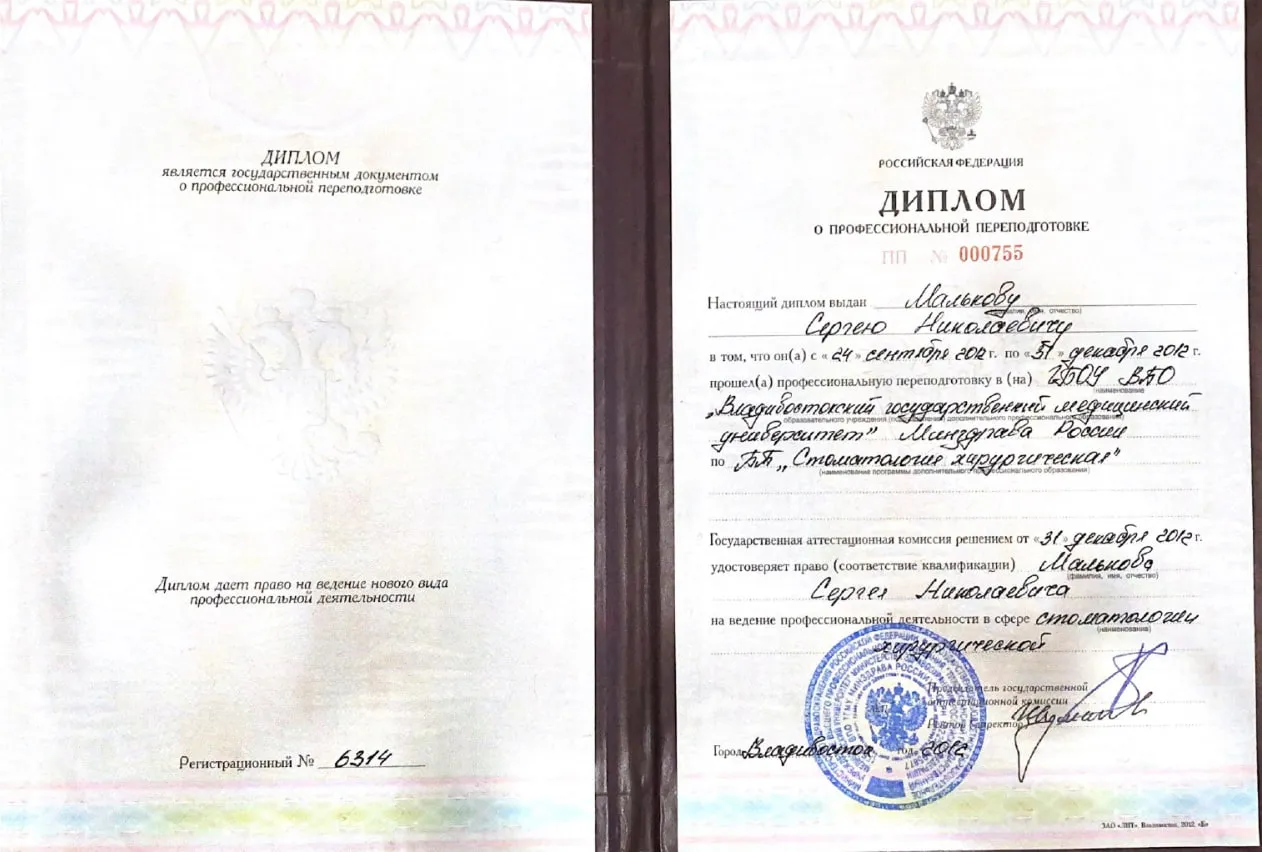 ДИПЛОМ
является государственным документом
о профессиональной переподготовке
Диплом дает право на ведение нового вида
профессиональной деятельности
Регистрационный № 6314
РОССИЙСКАЯ ФЕДЕРАЦИЯ
ДИПЛОМ
О ПРОФЕССИОНАЛЬНОЙ ПЕРЕПОДГОТОВКЕ
ПП № 000755
Настоящий диплом выдан Малькову
(фамилия, имя, отчество)
Сергею Николаевичу
в том, что он(а) с «24» сентября 2012 г. по «31» декабря 2012 г.
прошел(а) профессиональную переподготовку в (на) ГБОУ ВПО
(наименование
„Владивостокский государственный медицинский
образовательного учреждения дополнительного профессионального образования)
университет" Минздрава России
по „Стоматология хирургическая"
(наименование программы дополнительного профессионального образования)
Государственная аттестационная комиссия решением от «31» декабря 2012 г.
удостоверяет право (соответствие квалификации) Малькова
(фамилия, имя, отчество)
Сергея Николаевича
на ведение профессиональной деятельности в сфере стоматологии
(наименование)
хирургической
Председатель государственной
аттестационной комиссии
Ректор (директор)
Город Владивосток, год 2012
ЗАО «ЛИТ», Владивосток, 2012, «Б»